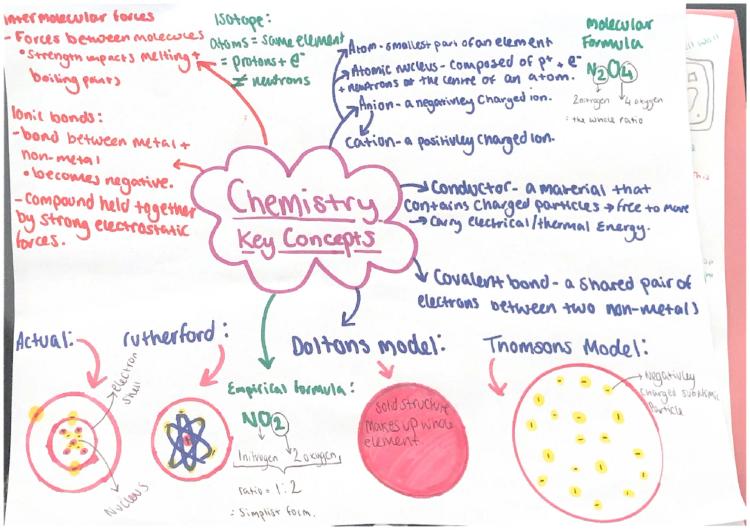 Intermolecular forces
- Forces between molecules
• Strength impacts melting +
boiling points
Ionic bonds:
- bond between metal +
non-metal
• becomes negative.
- compound held together
by strong electrostatic
forces.
Isotope:
atoms = same element
= protons + e⁻
≠ neutrons
Atom - smallest part of an element
Atomic nucleus - composed of p⁺ + e⁻
+ neutrons at the centre of an atom.
Anion - a negativley charged ion.
Cation - a positivley charged ion.
Molecular
Formula
N2O4
2 nitrogen
4 oxygen
: the whole ratio
Chemistry
Key Concepts
Conductor - a material that
contains charged particles → free to move
→ Carry electrical/thermal Energy.
Covalent bond - a shared pair of
electrons between two non-metals
Actual:
electron
shell
Nucleus
rutherford:
Empirical formula:
NO2
1 nitrogen
2 oxygen
ratio = 1:2
: Simplist form.
Daltons model:
Solid structure
Makes up whole
element
Thomsons Model:
Negativley
charged subatomic
particle